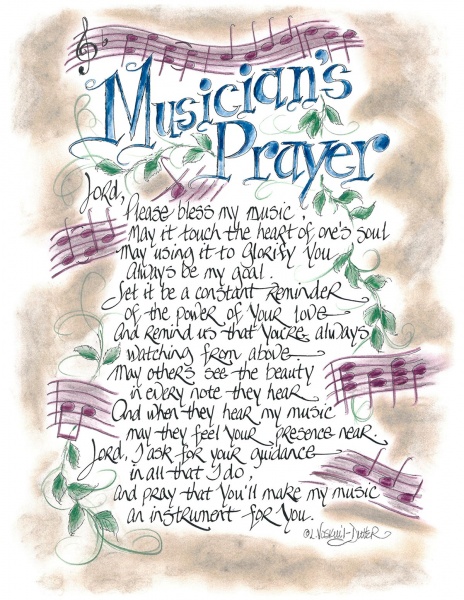 Musician's
Prayer
Lord,
Please bless my music,
May it touch the heart of one's soul
May using it to Glorify You
Always be my goal.
Let it be a constant Reminder
of the power of Your Love
And Remind us that You're always
watching from above.
May others see the beauty
in every note they hear
And when they hear my music
may they feel Your presence near.
Lord, I ask for your guidance
in all that I do,
and pray that You'll make my music
an instrument for You.